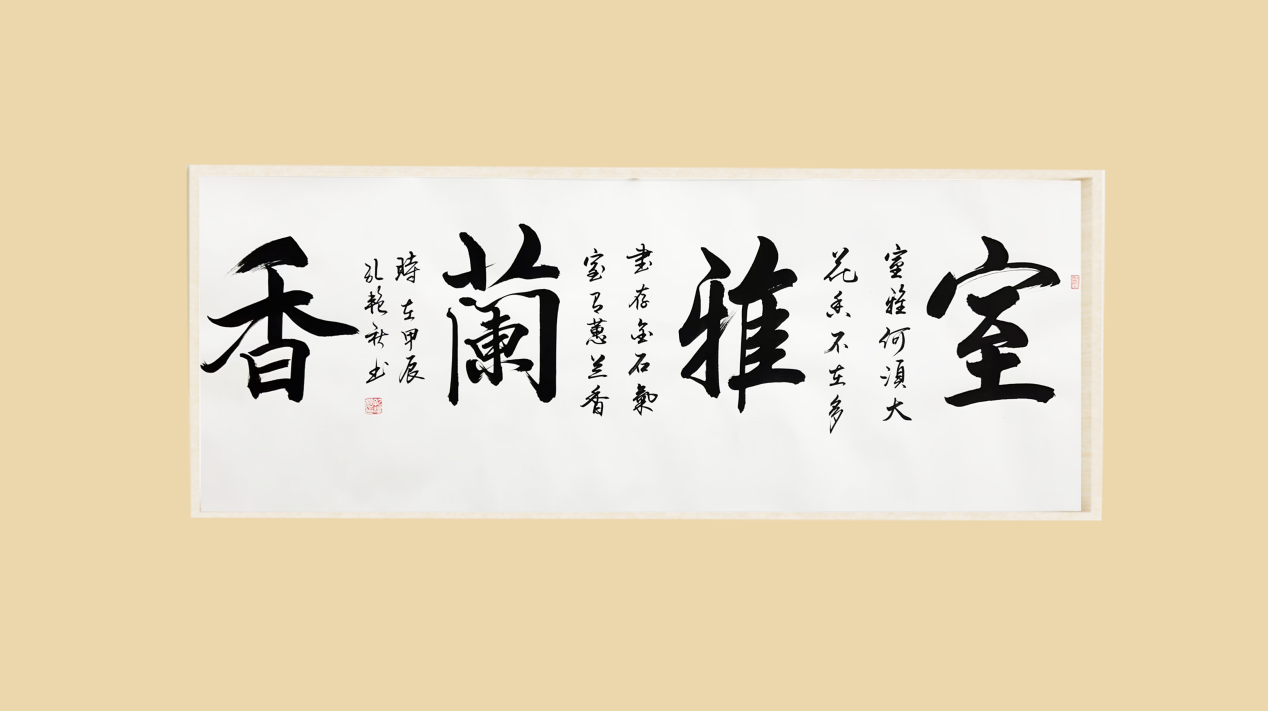 室雅蘭香
室雅何須大
花香不在多
書存金石氣
室有蕙兰香
時在甲辰
孔艳秋书